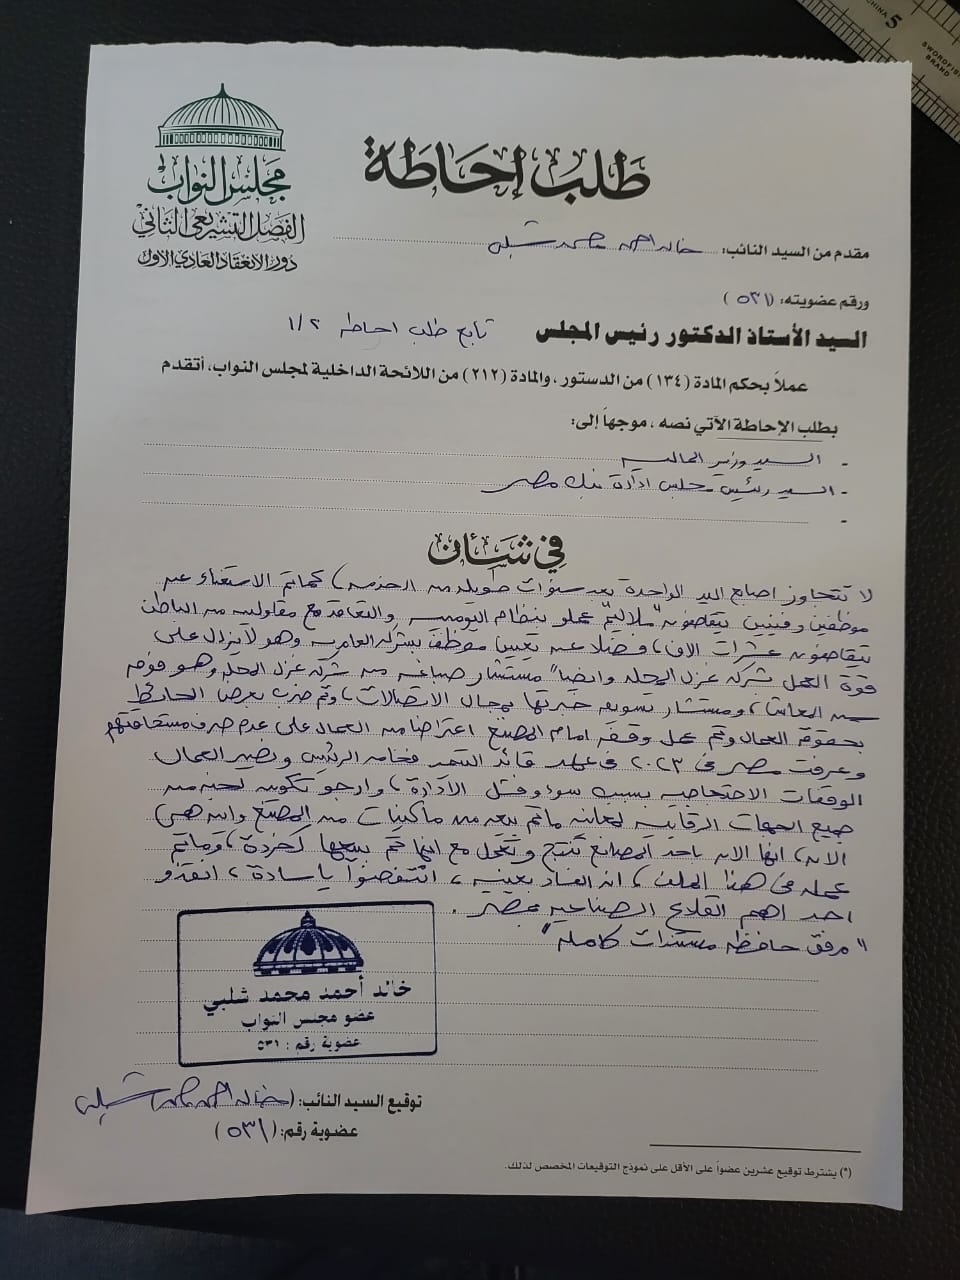 مجلس النواب
الفصل التشريعي الثاني
دور الانعقاد العادي الأول
طلب إحاطة
مقدم من السيد النائب: خالد احمد محمد شلبى
ورقم عضويته: (٥٣١)
السيد الأستاذ الدكتور رئيس المجلس تابع طلب احاطه ١/٢
عملاً بحكم المادة (١٣٤) من الدستور، والمادة (٢١٢) من اللائحة الداخلية لمجلس النواب، أتقدم
بطلب الإحاطة الآتي نصه، موجهاً إلى:
- السيد وزير الماليه
- السيد رئيس مجلس ادارة بنك مصر
-
في شأن
لا تتجاوز اصابع اليد الواحدة بعد سنوات طويله من الخدمه) كما تم الاستغناء عن
موظفين وفنيين يتقاضون "ملاليم" عملو بنظام اليوميه والتعاقد مع مقاولين من الباطن
يتقاضون عشرات الاف، وفضلا عن تعيين موظف بشركه العامريه وهو لا يزال على
قوة العمل بشركه غزل المحله وايضا" مستشار صباغه من شركه غزل المحله وهو فوق
سن المعاش، ومستشار تسويق خبرتها بمجال الاتصالات، وتم ضرب بعرض الحائط
بحقوق العمال وتم عمل وقفه امام المصنع اعتراضا من العمال على عدم صرف مستحقاتهم
وعرفت مصر فى ٢٠٢٣ فى عهد قائد التعمير فخامه الرئيس ونصير العمال
الوقفات الاحتجاجيه بسبب سوء وفشل الادارة، وارجو تكوين لجنه من
جميع الجهات الرقابيه لمعاينه ماتم بيعه من ماكينات من المصنع واين هى
الان، انها الان باحد المصانع تنتج وتعمل مع انها تم بيعها كخردة، وماتم
عمله فى هذا الملف، ان الفساد بعينه، انتفضوا يا سادة، انقذو
احد اهم القلاع الصناعيه بمصر.
"مرفق حافظه مستندات كامله"
خالد أحمد محمد شلبي
عضو مجلس النواب
عضوية رقم: ٥٣١
توقيع السيد النائب: (خالد احمد محمد شلبى)
عضوية رقم: (٥٣١)
(*) يشترط توقيع عشرين عضواً على الأقل على نموذج التوقيعات المخصص لذلك.
CHINA
5
SWORDFISH
BRAND